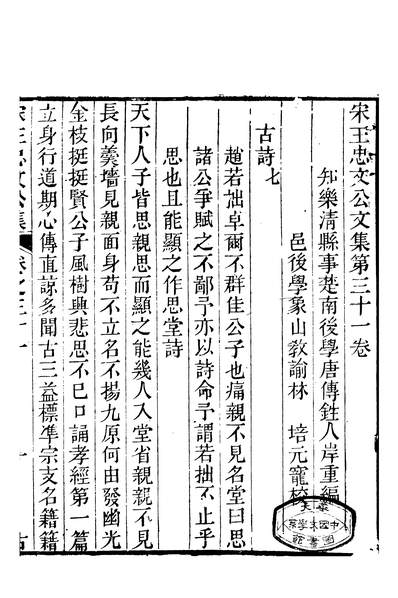 宋王忠文公文集第三十一卷
知樂清縣事楚南後學唐傳鉎人岸重編
邑後學象山敎諭林 培元寵校
古詩七
趙若拙卓爾不群佳公子也痛親不見名堂曰思
諸公爭賦之不鄙予亦以詩命予謂若拙不止乎
思也且能顯之作思堂詩
天下人子皆思親思而顯之能幾人入堂省親親不見
長向羹墻見親面身苟不立名不揚九原何由發幽光
金枝挺挺賢公子風樹興悲思不已口誦孝經第一篇
立身行道期心傳直諒多聞古三益標準宗支名籍籍
宋王忠文公集 卷之三十一 一